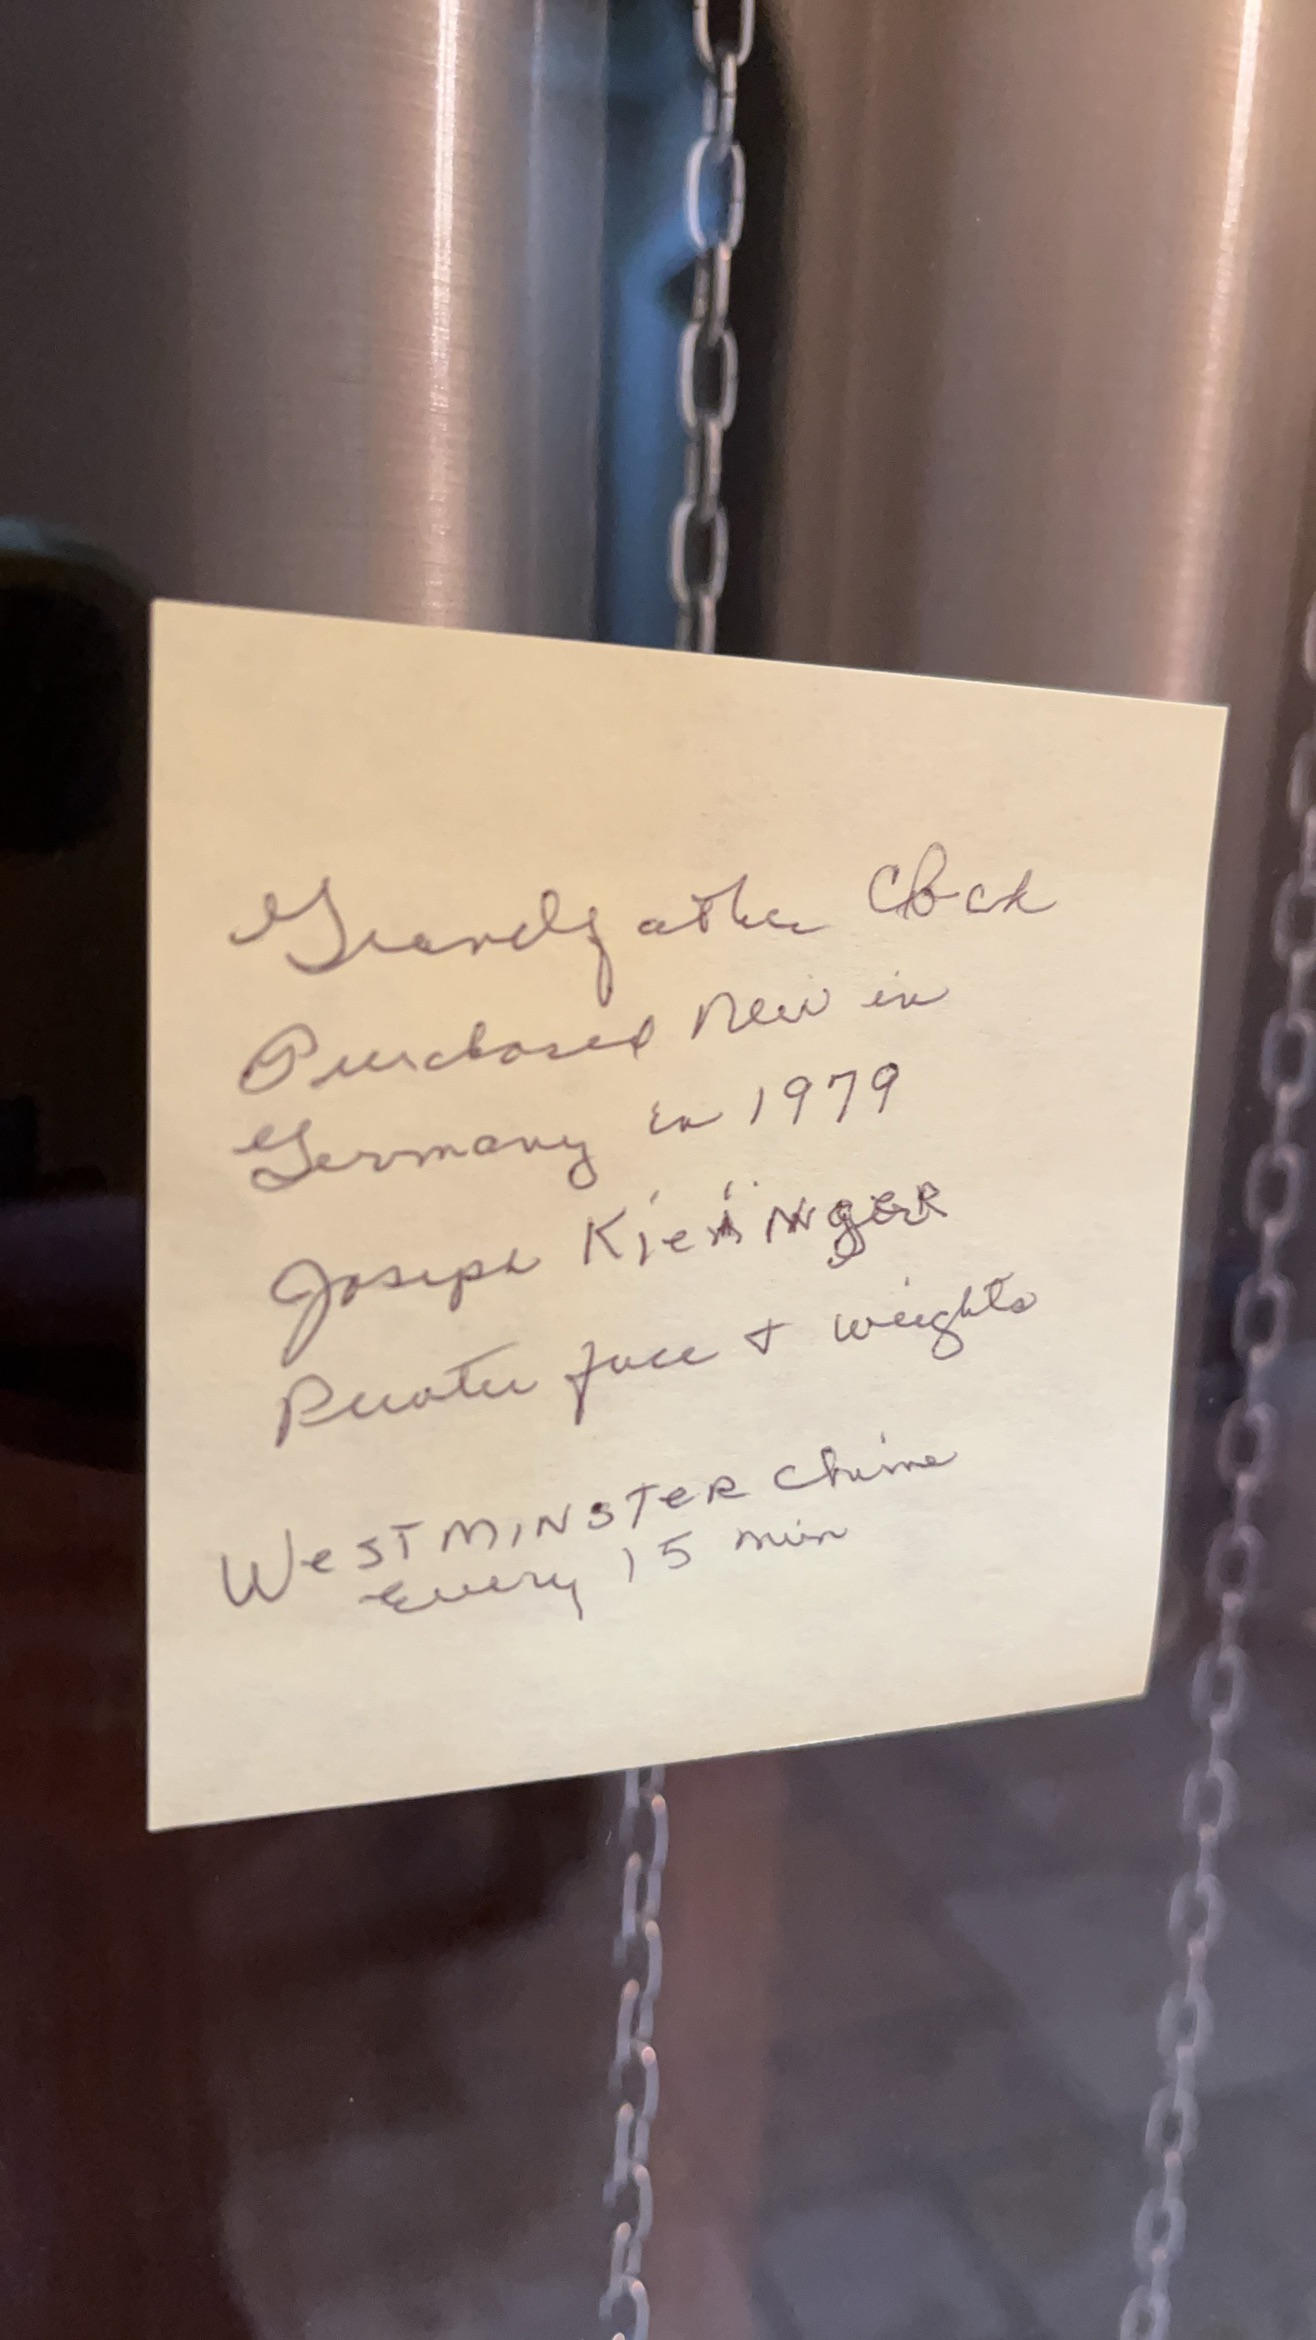 Grandfather Clock
Purchased New in
Germany in 1979
Joseph
Pewter face + weights
WESTMINSTER Chime
Every 15 min